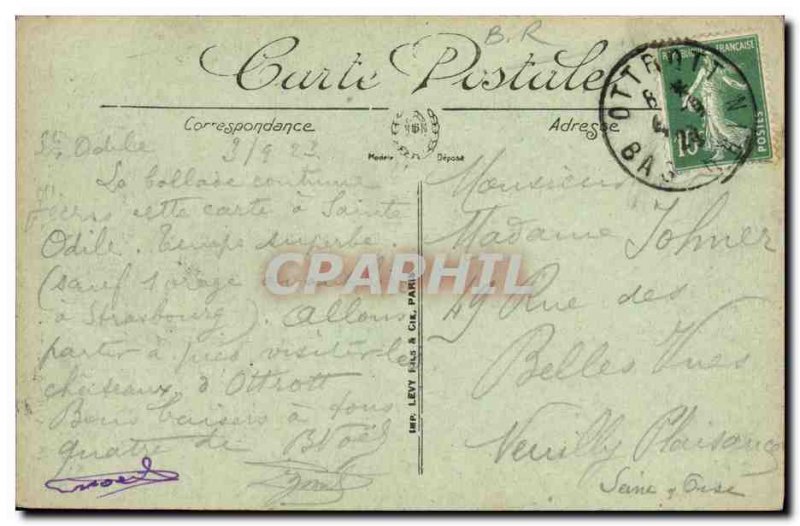 B.R
Carte Postale
Correspondance
Adresse
Modèle Déposé
RÉPUBLIQUE FRANÇAISE
10c
POSTES
OTTROTT
BAS
Ste Odile 3/9 23
La ballade continue
cette carte à Sainte
Odile. Temps superbe.
(sauf 1 orage
à Strasbourg). Allons
partir à pied visiter les
châteaux d'Ottrott
Bons baisers à tous
quatre de
Monsieur
Madame Johner
49 Rue des
Belles Vues
Neuilly Plaisance
Seine & Oise
IMP. LEVY FILS & CIE, PARIS
CPARHIL